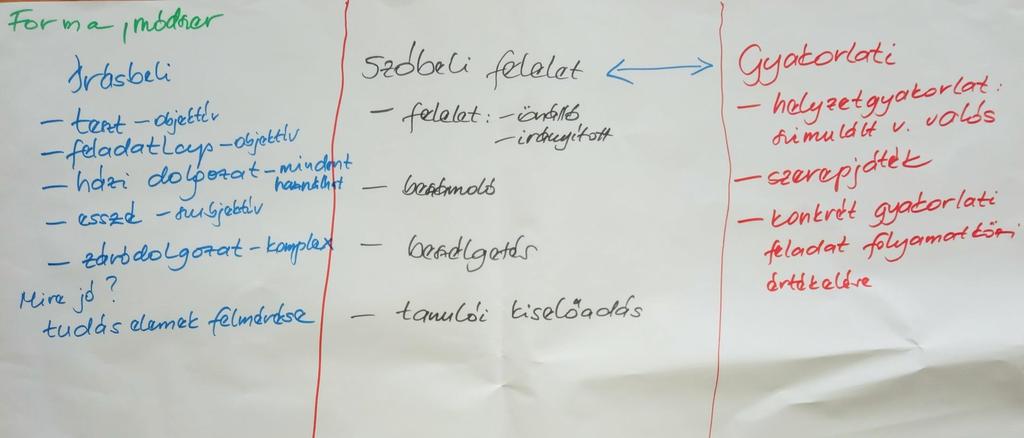 Forma, módszer
Írásbeli
- teszt - objektív
- feladatlap - objektív
- házi dolgozat - mindent
használhat
- esszé - szubjektív
- záródolgozat - komplex
Mire jó?
tudás elemek felmérése
Szóbeli felelet
- felelet: - önálló
- irányított
- beszámoló
- beszélgetés
- tanulói kiselőadás
Gyakorlati
- helyzetgyakorlat:
szimulált v. valós
- szerepjáték
- konkrét gyakorlati
feladat folyamatközi
értékelése